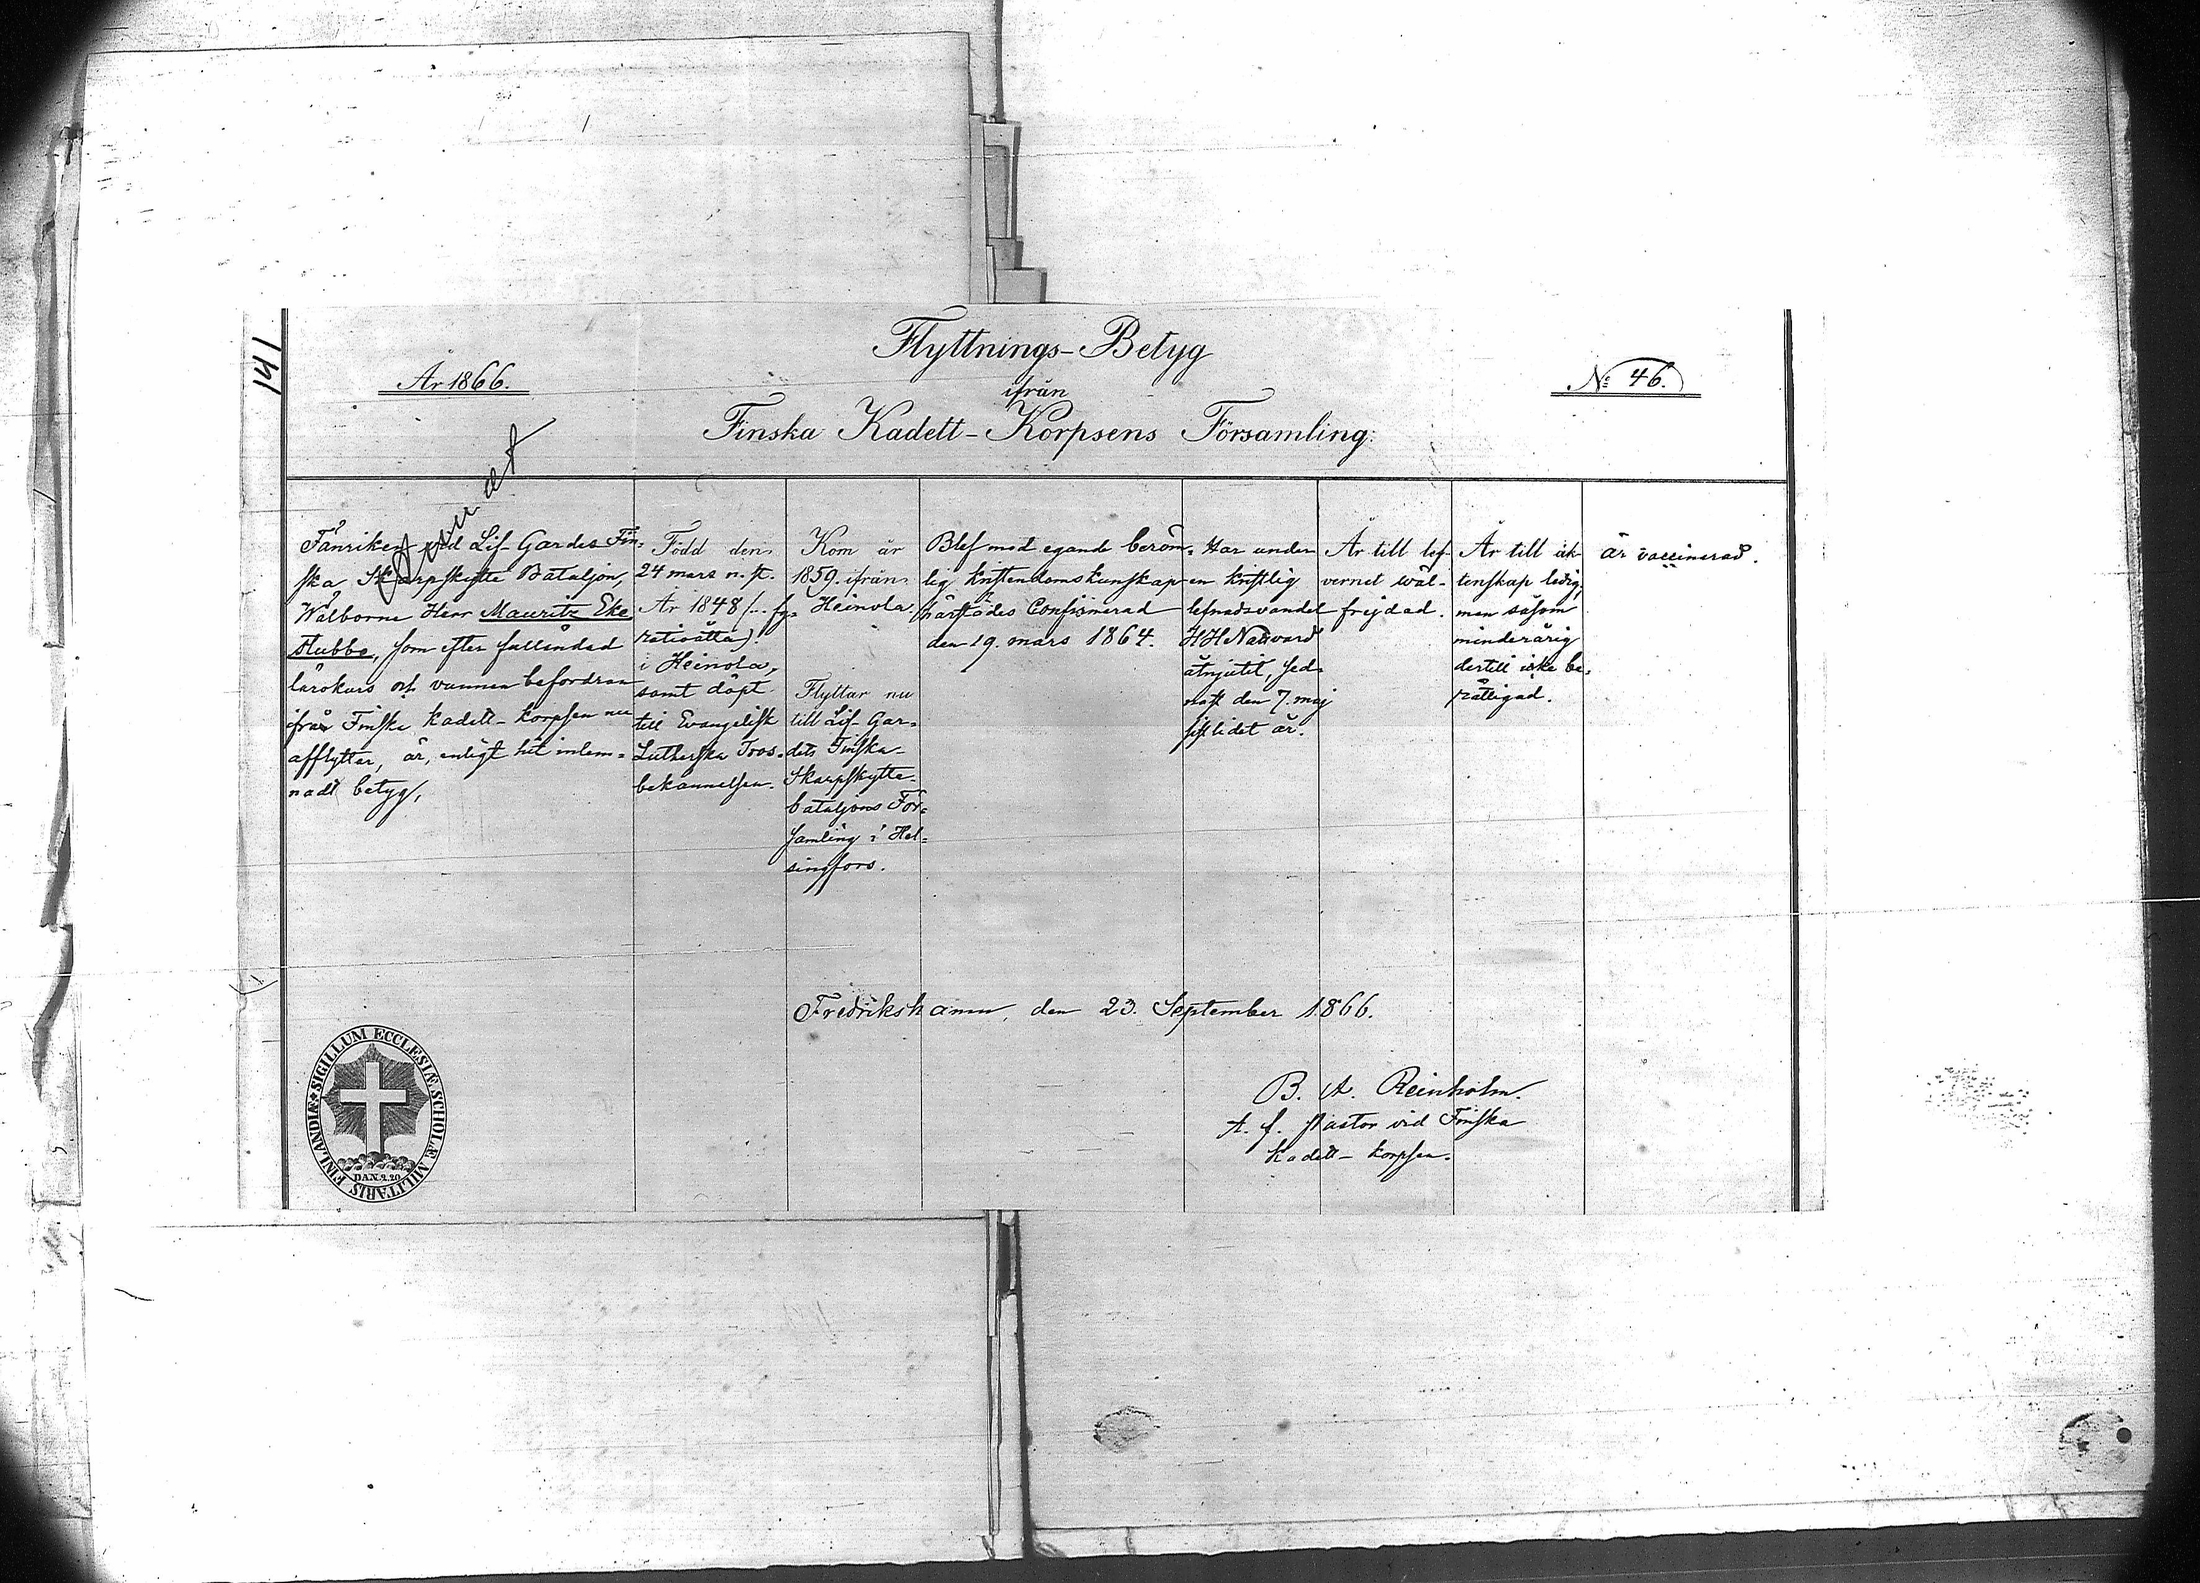 141
Flyttnings-Betyg
År 1866.
ifrån
No 46.
Finska Kadett-Korpsens Församling.
Fänriken vid Lif-Gardes Fin-
ska Skarpskytte Bataljon,
Wälborne Herr Mauritz Eke
Stubbe, som efter fulländad
lärokurs och vunnen befordran
ifrån Finska Kadett-Korpsen nu
afflyttar, är, enligt hit inlem-
nadt betyg,
Född den
24 mars n. st.
År 1848 (... fy-
ratioåtta)
i Heinola,
samt döpt
till Evangelisk
Lutherska Troos-
bekännelsen.
Kom år
1859. ifrån
Heinola.
Flyttar nu
till Lif-Gar-
dets Finska
Skarpskytte-
bataljons För-
samling i Hel-
singfors.
Blef med egande beröm-
lig kristendomskunskap
härstädes Confirmerad
den 19. mars 1864.
Har under
en kristlig
lefnadsvandel
HH Nattvard
åtnjutit, sed-
nast den 7. maj
sistlidet år.
Är till lef-
vernet wäl-
frejdad.
Är till äk-
tenskap ledig,
men såsom
minderårig
dertill icke be-
rättigad.
är vaccinerad.
Fredrikshamn, den 23. September 1866.
B. A. Reinholm.
t. f. Pastor vid Finska
Kadett-Korpsen.
SIGILLUM ECCLESIÆ SCHOLÆ MILITARIS FINLANDIÆ
DAN. 2. 20